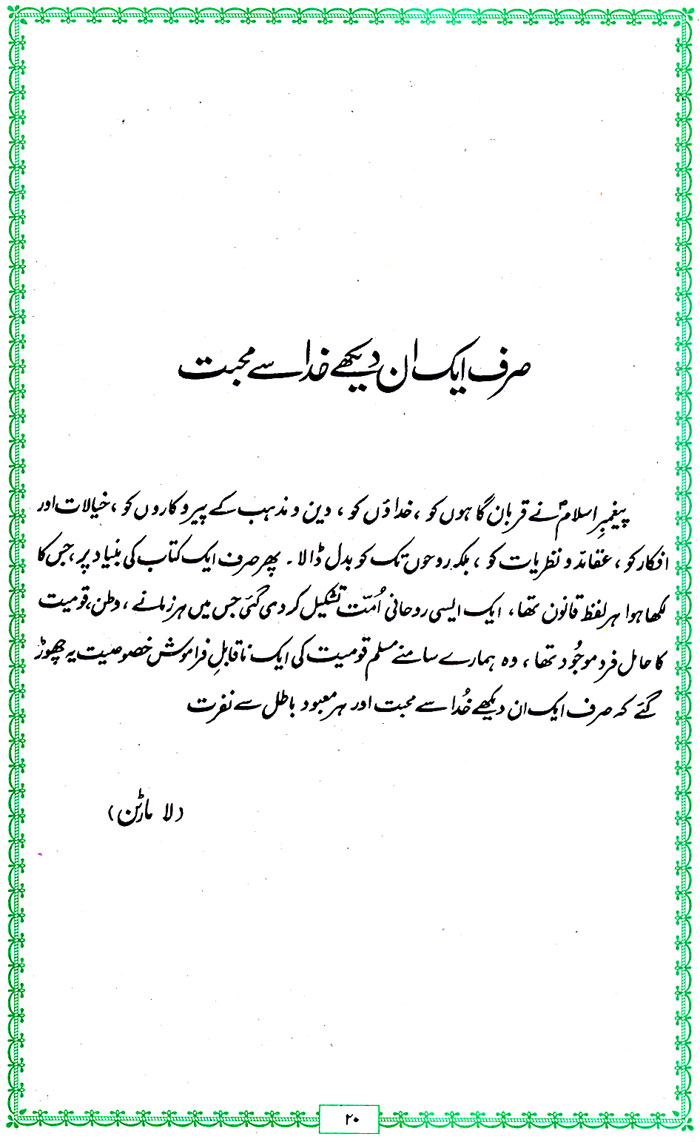 صرف ایک ان دیکھے خدا سے محبت
پیغمبرِ اسلامؐ نے قربان گاہوں کو ، خداؤں کو ، دین و مذہب کے پیروکاروں کو ، خیالات اور
افکار کو ، عقائد و نظریات کو ، بلکہ روحوں تک کو بدل ڈالا ۔ پھر صرف ایک کتاب کی بنیاد پر ، جس کا
لکھا ہوا ہر لفظ قانون تھا ، ایک ایسی روحانی اُمّت تشکیل کر دی گئی جس میں ہر زمانے ، وطن ، قومیت
کا حامل فرد موجُود تھا ، وہ ہمارے سامنے مسلم قومیت کی ایک ناقابلِ فراموش خصوصیت یہ چھوڑ
گئے کہ صرف ایک ان دیکھے خُدا سے محبت اور ہر معبود باطل سے نفرت
(لا مارٹن)
۲۰